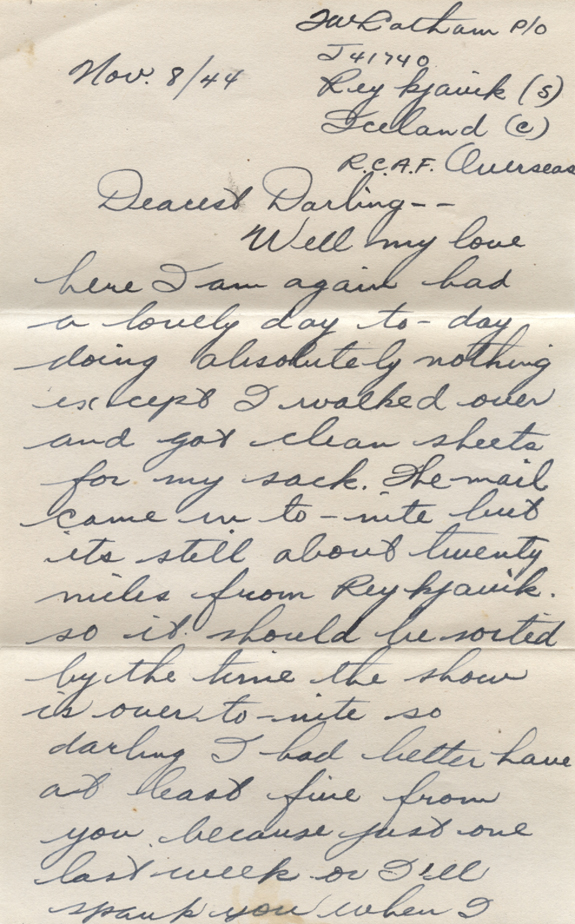 JW Latham P/O
J41740
Nov. 8/44
Reykjavik (S)
Iceland (C)
R.C.A.F. Overseas
Dearest Darling--
Well my love
here I am again had
a lovely day to-day
doing absolutely nothing
except I walked over
and got clean sheets
for my sack. The mail
came in to-nite but
its still about twenty
miles from Reykjavik.
so it should be sorted
by the time the show
is over to-nite so
darling I had better have
at least five from
you because just one
last week or I'll
spank you when I